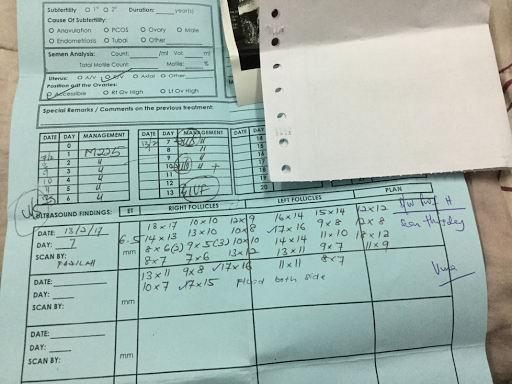 Subfertility O 1° O 2° Duration: year(s)
Cause Of Subfertility:
O Anovulation O PCOS O Ovary O Male
O Endometriosis O Tubal O Other
Semen Analysis: Count: /ml Vol: ml
Total Motile Count: Motile: %
Uterus: O A/V O R/V O Axial O Other
Position of the Ovaries:
O Accessible O Rt Ov High O Lt Ov High
Special Remarks / Comments on the previous treatment:
DATE DAY MANAGEMENT DATE DAY MANAGEMENT DATE DAY
0 13/2 7 14
1 M225 8 " 15
2 " 9 "
3 " 10 " +
4 " 11 "
5 " 12 "
6 " 13 20
ULTRASOUND FINDINGS: ET RIGHT FOLLICLES LEFT FOLLICLES PLAN
DATE: 13/2/17 6.5 mm
DAY: 7
SCAN BY: FADZILAH
13 x 17 10 x 10 12 x 9 16 x 14 15 x 14 12 x 12
14 x 13 13 x 10 10 x 8 17 x 16 9 x 8 12 x 8
8 x 6 (2) 9 x 5 (3) 10 x 10 14 x 14 11 x 10 12 x 12
8 x 7 7 x 6 13 x 12 13 x 11 9 x 7 11 x 9
13 x 11 9 x 8 17 x 16 11 x 11 8 x 7
10 x 7 17 x 15 Fluid both side
DATE:
DAY:
SCAN BY:
mm
DATE:
DAY:
SCAN BY:
mm